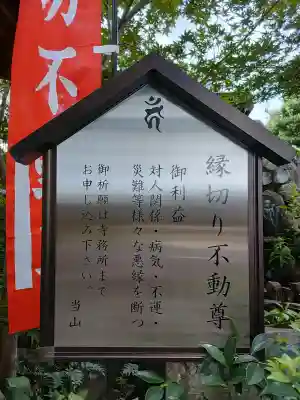 切不
縁切り不動尊
御利益
対人関係・病気・不運・
災難等様々な悪縁を断つ
御祈願は寺務所まで
お申し込み下さい。
当山